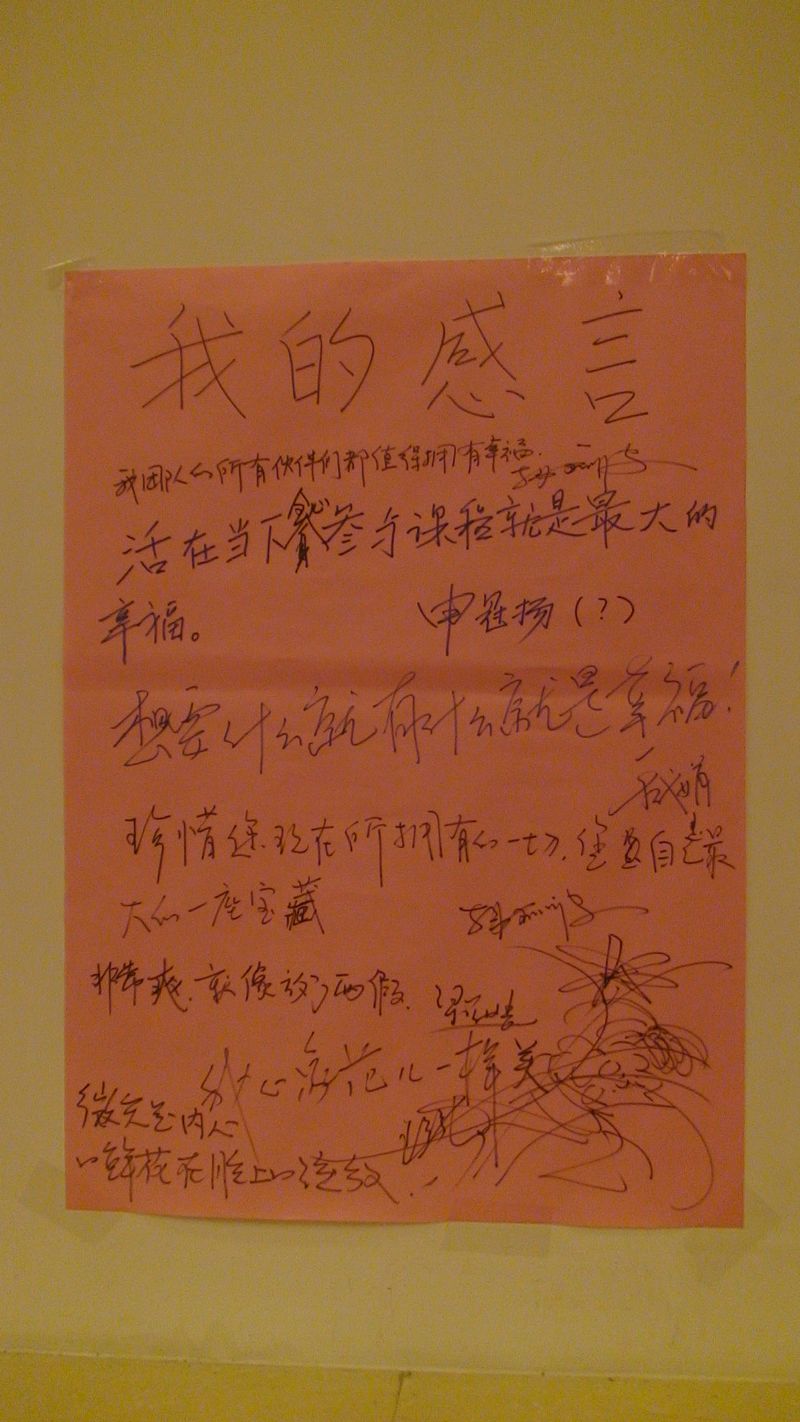 我的感言
我团队的所有伙伴们都值得拥有幸福.
活在当下参与课程就是最大的
幸福。 申冠扬(?)
想要什么就有什么就是幸福!
珍惜您现在所拥有的一切,
大的一座宝藏
非常爽.就像放了两假.
我心就花儿一样美
微笑是内心
的鲜花在脸上的绽放.